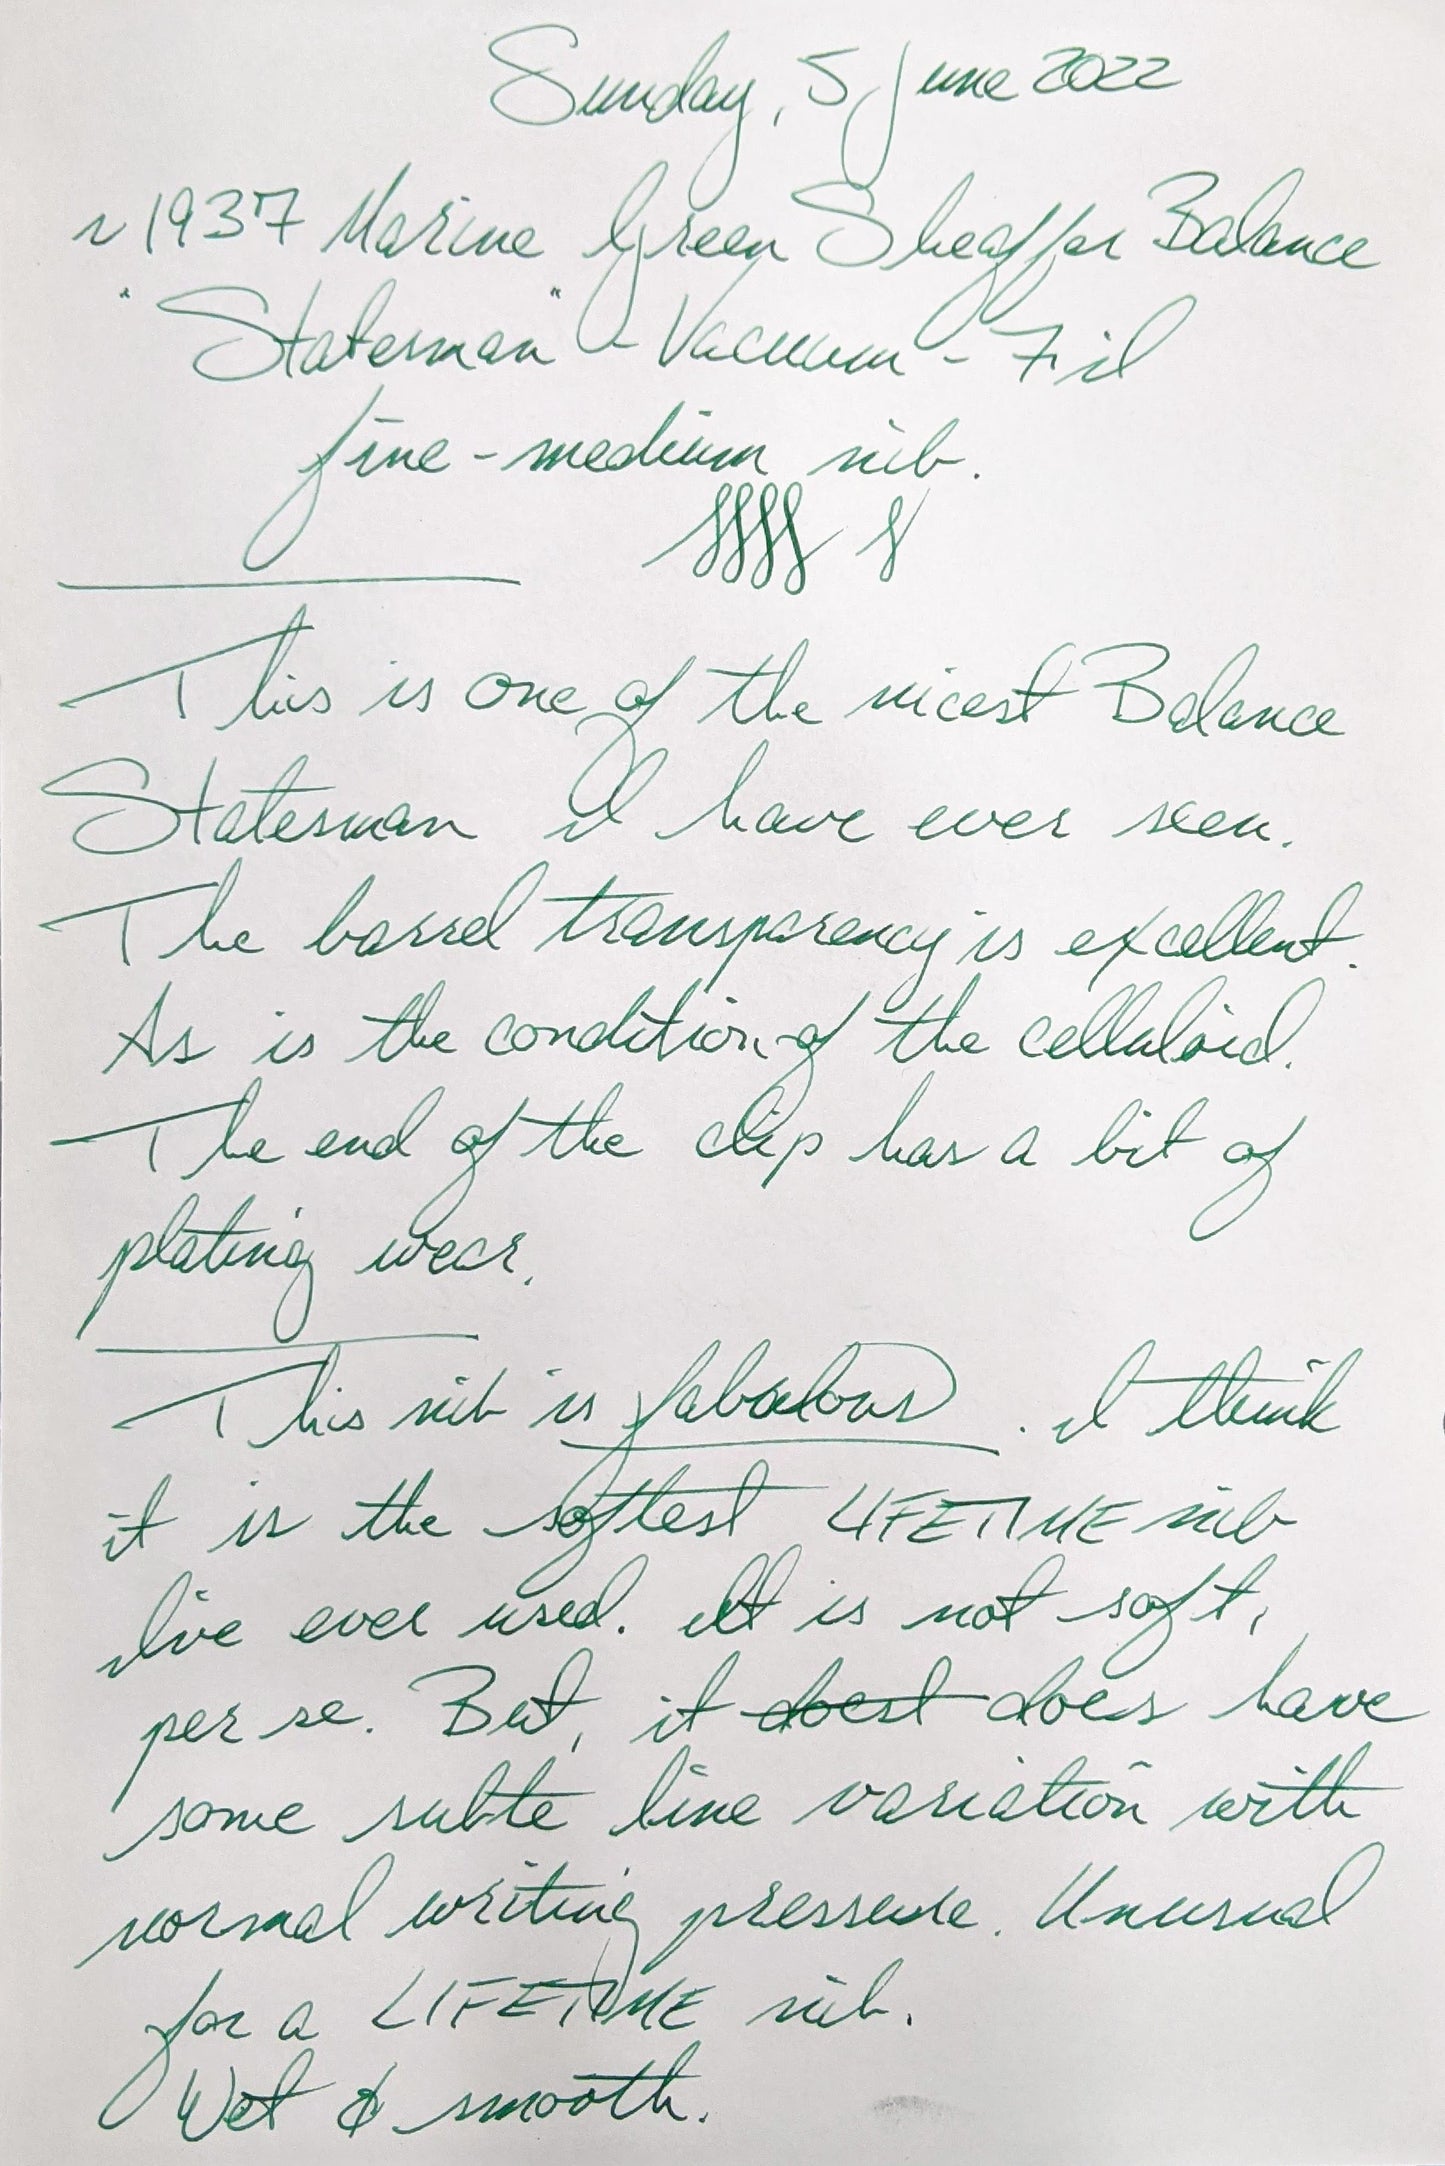 Sunday, 5 June 2022
~1937 Marine Green Sheaffer Balance
"Statesman" - Vacuum-Fil
fine-medium nib.
This is one of the nicest Balance
Statesman I have ever seen.
The barrel transparency is excellent.
As is the condition of the celluloid.
The end of the clip has a bit of
plating wear.
This nib is fabulous. I think
it is the softest LIFETIME nib
I've ever used. It is not soft,
per se. But, it doest does have
some subtle line variation with
normal writing pressure. Unusual
for a LIFETIME nib.
Wet & smooth.